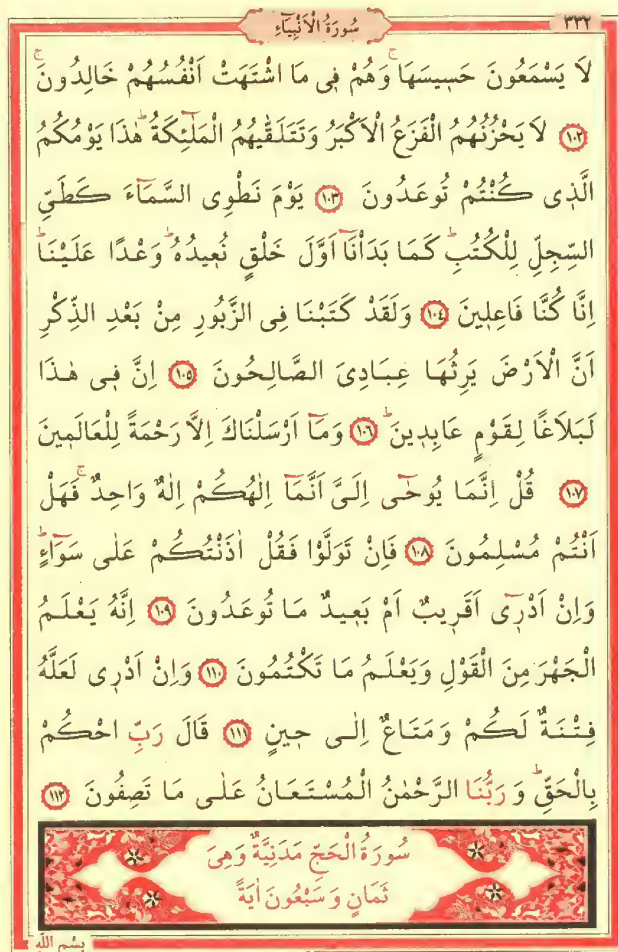 ٣٣٢
سُورَةُ الْاَنْبِيَٓاءِ
لَا يَسْمَعُونَ حَسٖيسَهَاۚ وَهُمْ فٖى مَا اشْتَهَتْ اَنْفُسُهُمْ خَالِدُونَۚ
١٠٢ لَا يَحْزُنُهُمُ الْفَزَعُ الْاَكْبَرُ وَتَتَلَقّٰيهُمُ الْمَلٰٓئِكَةُؕ هٰذَا يَوْمُكُمُ
الَّذٖى كُنْتُمْ تُوعَدُونَ ١٠٣ يَوْمَ نَطْوِى السَّمَٓاءَ كَطَىِّ
السِّجِلِّ لِلْكُتُبِؕ كَمَا بَدَاْنَٓا اَوَّلَ خَلْقٍ نُعٖيدُهُؕ وَعْدًا عَلَيْنَاؕ
اِنَّا كُنَّا فَاعِلٖينَ ١٠٤ وَلَقَدْ كَتَبْنَا فِى الزَّبُورِ مِنْ بَعْدِ الذِّكْرِ
اَنَّ الْاَرْضَ يَرِثُهَا عِبَادِىَ الصَّالِحُونَ ١٠٥ اِنَّ فٖى هٰذَا
لَبَلَاغًا لِقَوْمٍ عَابِدٖينَؕ ١٠٦ وَمَٓا اَرْسَلْنَاكَ اِلَّا رَحْمَةً لِلْعَالَمٖينَ
١٠٧ قُلْ اِنَّمَا يُوحٰٓى اِلَىَّ اَنَّمَٓا اِلٰهُكُمْ اِلٰهٌ وَاحِدٌۚ فَهَلْ
اَنْتُمْ مُسْلِمُونَ ١٠٨ فَاِنْ تَوَلَّوْا فَقُلْ اٰذَنْتُكُمْ عَلٰى سَوَٓاءٍؕ
وَاِنْ اَدْرٖٓى اَقَرٖيبٌ اَمْ بَعٖيدٌ مَا تُوعَدُونَ ١٠٩ اِنَّهُ يَعْلَمُ
الْجَهْرَ مِنَ الْقَوْلِ وَيَعْلَمُ مَا تَكْتُمُونَ ١١٠ وَاِنْ اَدْرٖى لَعَلَّهُ
فِتْنَةٌ لَكُمْ وَمَتَاعٌ اِلٰى حٖينٍ ١١١ قَالَ رَبِّ احْكُمْ
بِالْحَقِّؕ وَرَبُّنَا الرَّحْمٰنُ الْمُسْتَعَانُ عَلٰى مَا تَصِفُونَ ١١٢
سُورَةُ الْحَجِّ مَدَنِيَّةٌ وَهِىَ
ثَمَانٍ وَسَبْعُونَ اٰيَةً
بِسْمِ اللّٰهِ